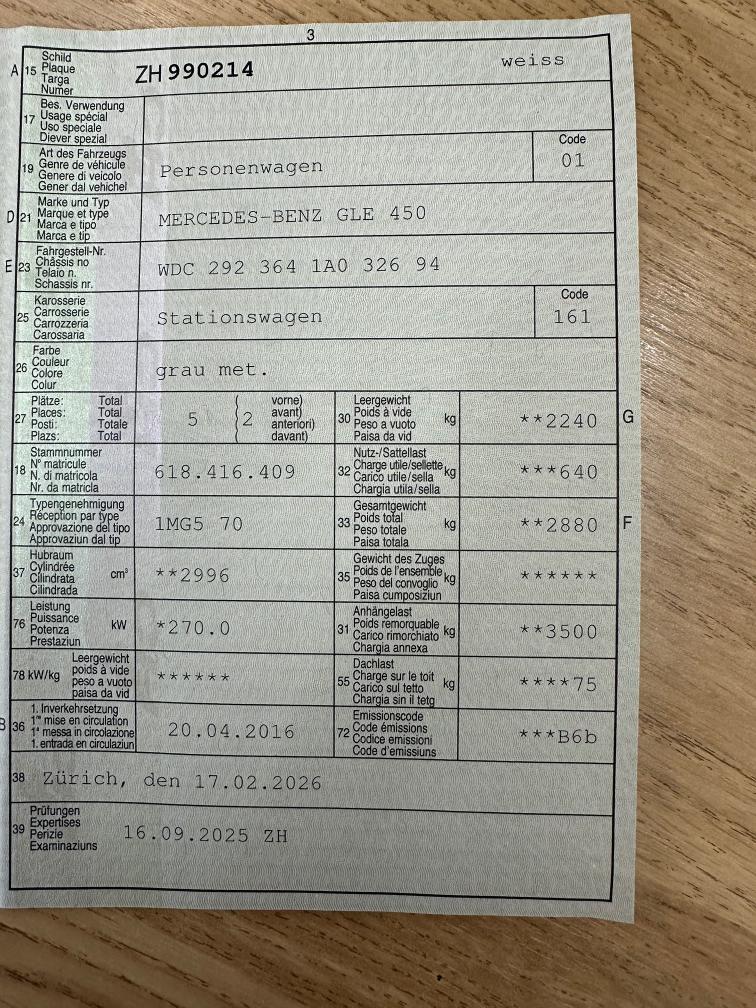 3
A 15 Schild
Plaque
Targa
Numer
ZH 990214 weiss
17 Bes. Verwendung
Usage spécial
Uso speciale
Diever spezial
19 Art des Fahrzeugs
Genre de véhicule
Genere di veicolo
Gener dal vehichel
Personenwagen
Code
01
D 21 Marke und Typ
Marque et type
Marca e tipo
Marca e tip
MERCEDES-BENZ GLE 450
E 23 Fahrgestell-Nr.
Châssis no
Telaio n.
Schassis nr.
WDC 292 364 1A0 326 94
25 Karosserie
Carrosserie
Carrozzeria
Carossaria
Stationswagen
Code
161
26 Farbe
Couleur
Colore
Colur
grau met.
27 Plätze: Total
Places: Total
Posti: Totale
Plazs: Total
5 ( 2 vorne)
avant)
anteriori)
davant)
30 Leergewicht
Poids à vide
Peso a vuoto
Paisa da vid
kg
**2240 G
18 Stammnummer
N° matricule
N. di matricola
Nr. da matricla
618.416.409
32 Nutz-/Sattellast
Charge utile/sellette
Carico utile/sella
Chargia utila/sella
kg
***640
24 Typengenehmigung
Réception par type
Approvazione del tipo
Approvaziun dal tip
1MG5 70
33 Gesamtgewicht
Poids total
Peso totale
Paisa totala
kg
**2880 F
37 Hubraum
Cylindrée
Cilindrata
Cilindrada
cm³
**2996
35 Gewicht des Zuges
Poids de l'ensemble
Peso del convoglio
Paisa cumposiziun
kg
******
76 Leistung
Puissance
Potenza
Prestaziun
kW
*270.0
31 Anhängelast
Poids remorquable
Carico rimorchiato
Chargia annexa
kg
**3500
78 kW/kg Leergewicht
poids à vide
peso a vuoto
paisa da vid
******
55 Dachlast
Charge sur le toit
Carico sul tetto
Chargia sin il tetg
kg
****75
B 36 1. Inverkehrsetzung
1re mise en circulation
1a messa in circolazione
1. entrada en circulaziun
20.04.2016
72 Emissionscode
Code émissions
Codice emissioni
Code d'emissiuns
***B6b
38 Zürich, den 17.02.2026
39 Prüfungen
Expertises
Perizie
Examinaziuns
16.09.2025 ZH